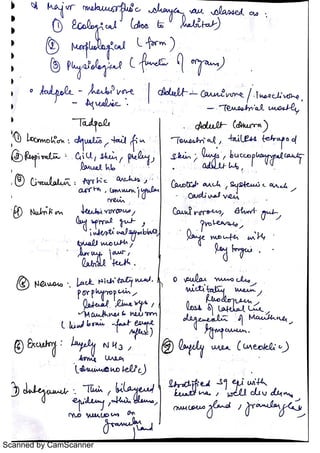 * Major metamorphic changes are classed as :
① Ecological (due to habitat)
② Morphological ( form )
③ Physiological ( function of organs)
o tadpole - herbivore | Adult - carnivore / Insectivore,
- Aquatic. - Terrestrial mostly
Tadpole Adult (Anura)
① Locomotion : Aquatic, tail fin Terrestrial, tailless tetrapod
② Respiration : Gill, skin, skin, lungs, buccopharyngeal cavity
Hb Adult Hb.
Circulation : Aortic arches, Carotid arch, systemic arch,
aorta, common jugular cardinal vein
vein
Nutrition herbivorous, Carnivorous, short gut,
long spiral gut, proteases,
small mouth, large mouth with
horny jaw, long tongue.
labial teeth.
⑤ Nervous : Lack Nictitating mem. o cular muscles,
porphyropsin, nictitating mem,
lateral line sys, Rhodopsin,
Mauthner's neuron loss of lateral line
( hind brain - fast escape degeneration of Mauthner's,
reflex) tympanum.
⑥ Excretory : Largely NH3, largely urea (ureotelic)
some urea
(Ammonotelic)
⑦ Integument : Thin, bilayered Stratified sq epi with
epidermis, thin dermis, keratin, well dev dermis,
no mucous or mucous gland, granular gland
granular
gland
Scanned by CamScanner